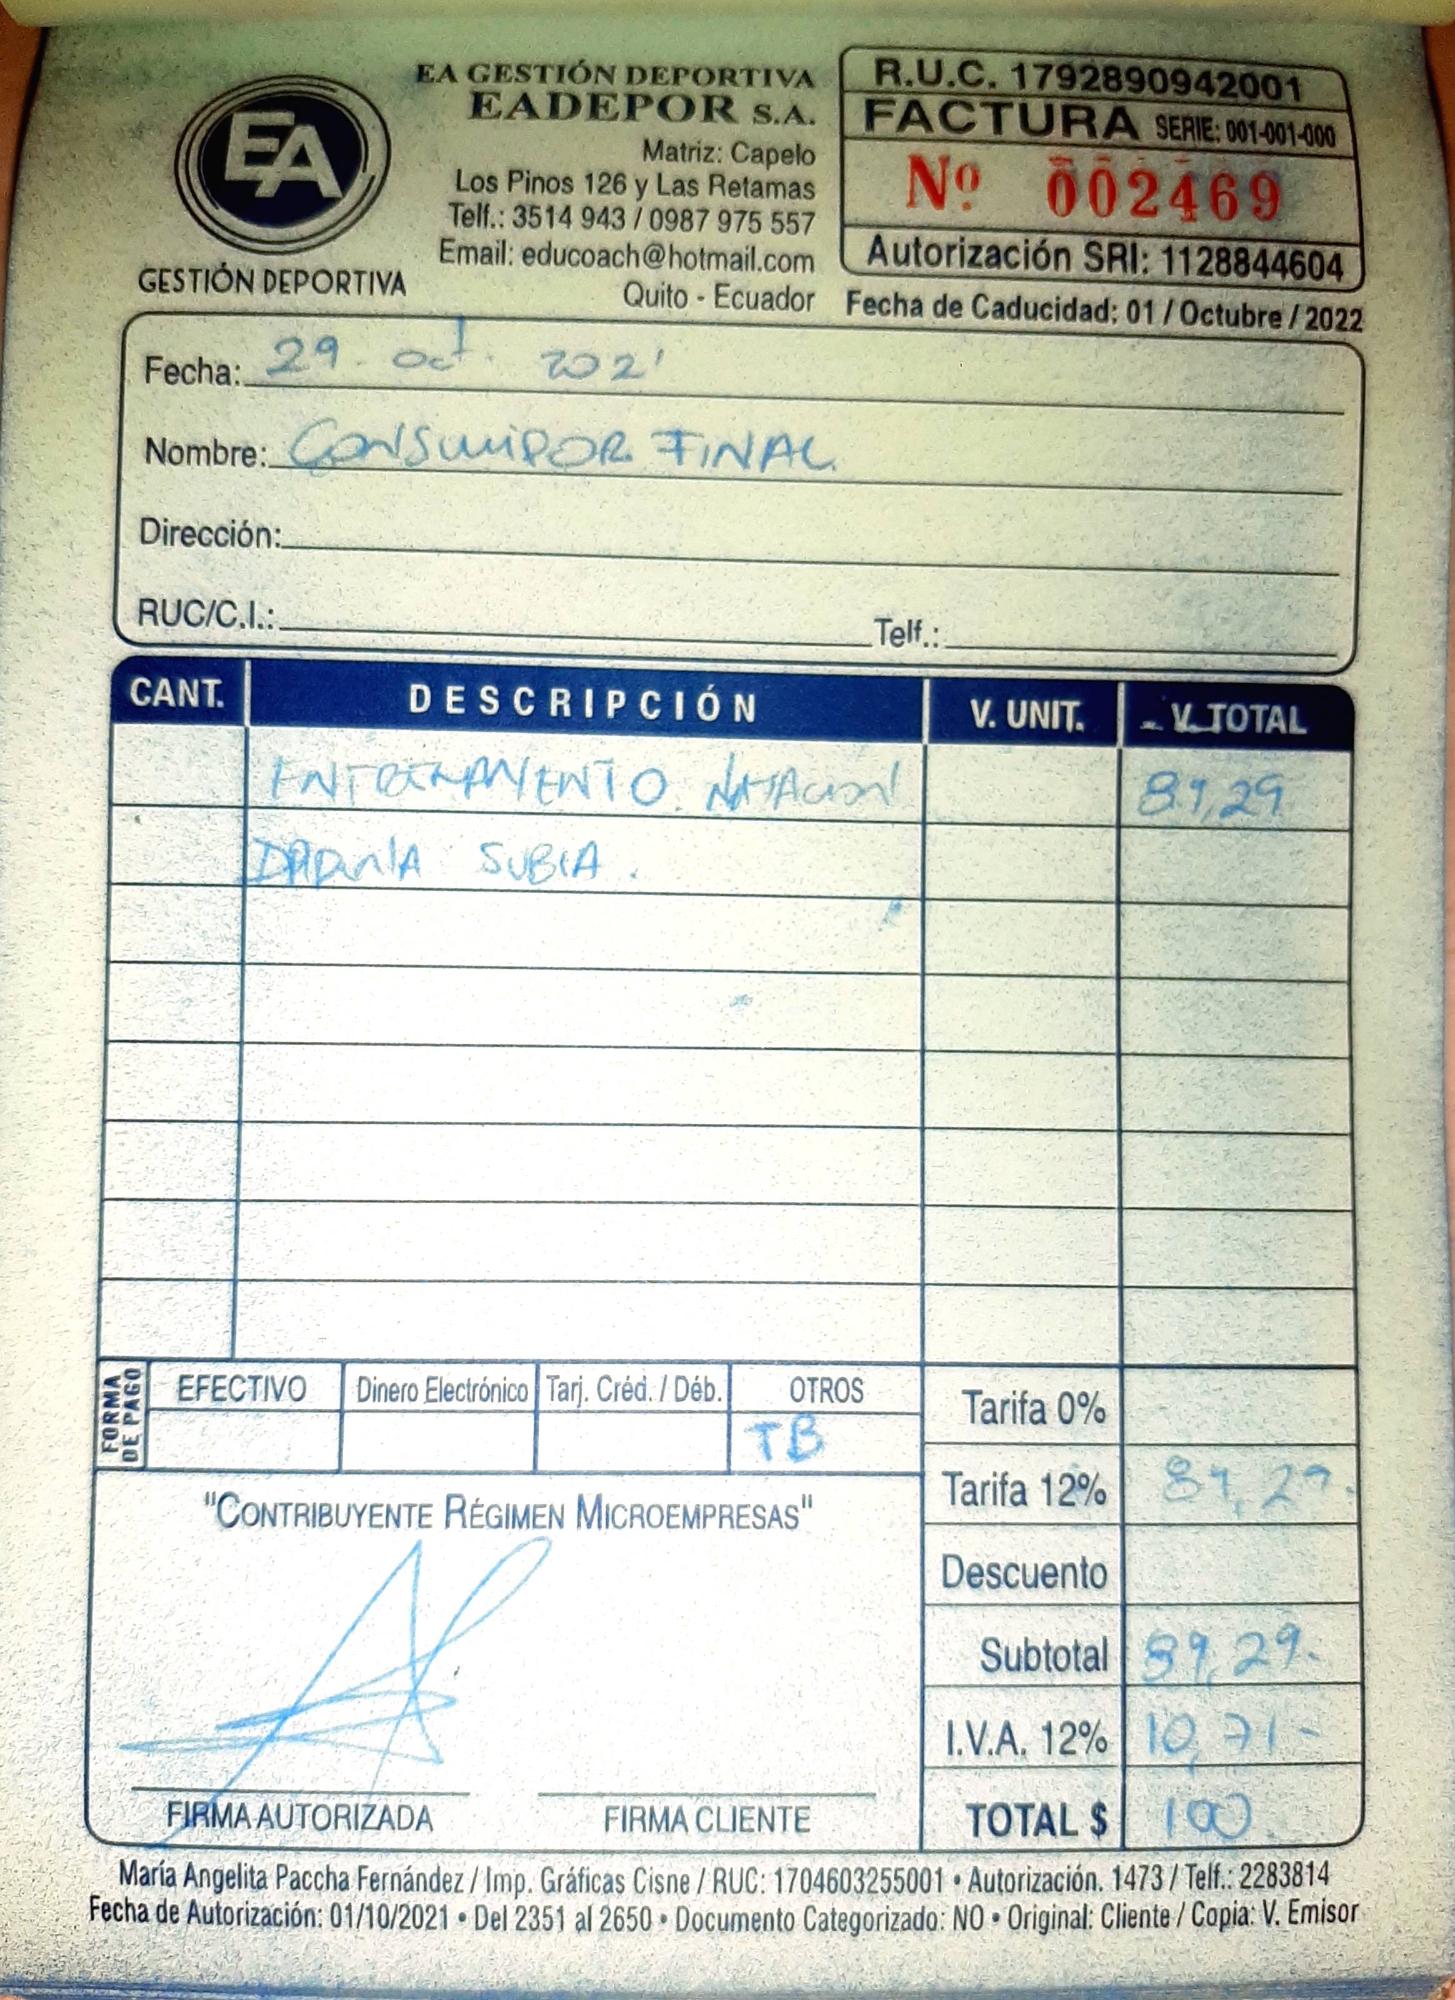 EA
GESTIÓN DEPORTIVA
EA GESTIÓN DEPORTIVA
EADEPOR S.A.
Matriz: Capelo
Los Pinos 126 y Las Retamas
Telf.: 3514 943 / 0987 975 557
Email: educoach@hotmail.com
Quito - Ecuador
R.U.C. 1792890942001
FACTURA SERIE: 001-001-000
Nº 002469
Autorización SRI: 1128844604
Fecha de Caducidad: 01 / Octubre / 2022
Fecha: 29. oct. 2021
Nombre: CONSUMIDOR FINAL
Dirección:
RUC/C.I.: Telf.:
CANT. DESCRIPCIÓN V. UNIT. V. TOTAL
ENTRENAMIENTO NATACION 89,29
SUBIA.
FORMA DE PAGO
EFECTIVO Dinero Electrónico Tarj. Créd. / Déb. OTROS
TB
Tarifa 0%
Tarifa 12% 89,29.
Descuento
Subtotal 89,29.
I.V.A. 12% 10,71-
TOTAL $ 100
"CONTRIBUYENTE RÉGIMEN MICROEMPRESAS"
FIRMA AUTORIZADA FIRMA CLIENTE
María Angelita Paccha Fernández / Imp. Gráficas Cisne / RUC: 1704603255001 • Autorización. 1473 / Telf.: 2283814
Fecha de Autorización: 01/10/2021 • Del 2351 al 2650 • Documento Categorizado: NO • Original: Cliente / Copia: V. Emisor